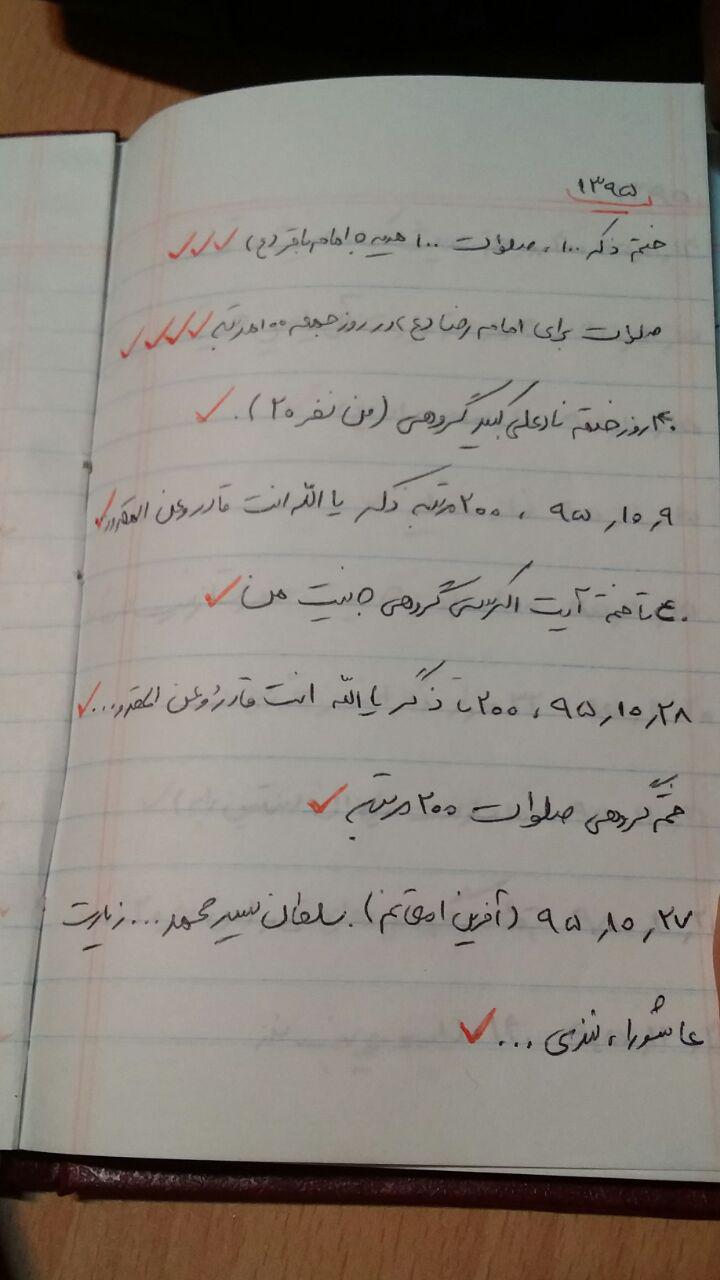 ۱۳۹۵
ختم ذکر ۱۰۰، صلوات ۱۰۰ هدیه به امام باقر (ع)
صلوات برای امام رضا (ع) در روز جمعه ۱۰۰۰ مرتبه
۴۰ روز ختم نادعلی کبیر گروهی (من نفر ۲۰).
۹٫۱۰٫۹۵، ۲۰۰ مرتبه ذکر یا الله انت قادر وعن المقدور
۴۰ تا ختم آیت الکرسی گروهی به نیت من
۲۸٫۱۰٫۹۵، ۲۰۰ تا ذکر یا الله انت قادر وعن المقدور...
ختم گروهی صلوات ۲۰۰ مرتبه
۲۷٫۱۰٫۹۵ (آفرین). سلطان سید محمد... زیارت
عاشورا، نذری ...